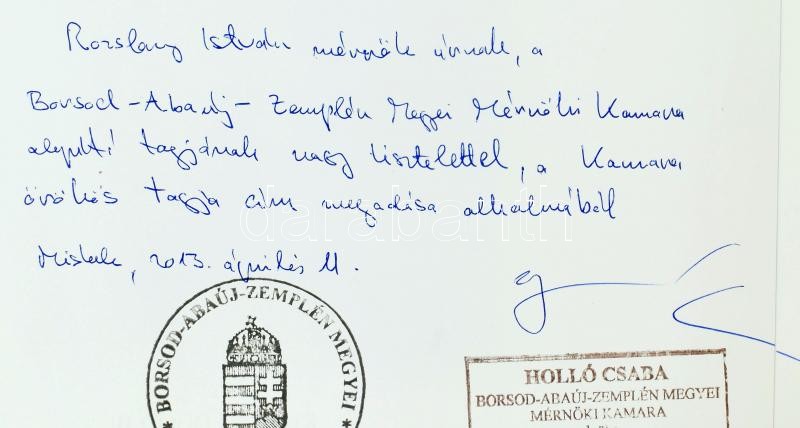 Rozslay István mérnök úrnak, a
Borsod-Abaúj-Zemplén Megyei Mérnöki Kamara
alapító tagjának nagy tisztelettel, a Kamara
örökös tagja cím megadása alkalmából
Miskolc, 2013. április 11.
darabanth
BORSOD-ABAÚJ-ZEMPLÉN MEGYEI
HOLLÓ CSABA
BORSOD-ABAÚJ-ZEMPLÉN MEGYEI
MÉRNÖKI KAMARA